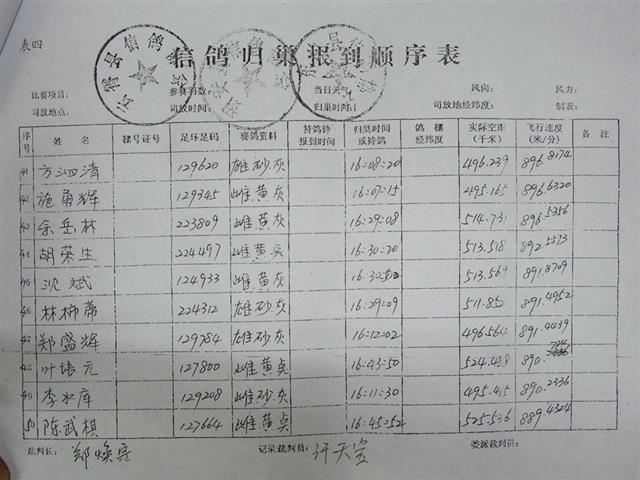 表四
信鸽归巢报到顺序表
比赛项目: 参赛羽数: 当日天气: 风向: 风力:
司放地点: 司放时间: 归巢时间: 司放地经纬度: 制表:
序号 姓名 棚号证号 足环足码 赛鸽资料 持鸽钟报到时间 归巢时间或持鸽 鸽棚经纬度 实际空距(千米) 飞行速度(米/分) 备注
41 方泗清 129620 雄砂灰 16:08:20 496.239 896.8174
42 施勇辉 129345 雌黄灰 16:07:15 495.165 896.6320
43 余岳林 223809 雌黄灰 16:29:08 514.731 896.5356
44 胡荣生 224497 雌黄臭 16:30:20 513.518 892.5573
45 沈斌 124933 雌黄灰 513.569 891.8709
46 林柿蒂 224312 雄砂灰 16:29:09 511.852 891.4952
47 郑盛辉 129784 雄砂灰 16:12:02 496.564 891.4439
48 叶培元 127800 雌黄点 16:43:50 524.488 890.
49 李水库 129208 雌砂灰 16:11:30 495.415 890.2336
50 陈武棋 127664 雌黄点 16:45:52 525.536 889.4324
裁判长: 郑焕宗 记录裁判员: 许天宝 委派裁判员: